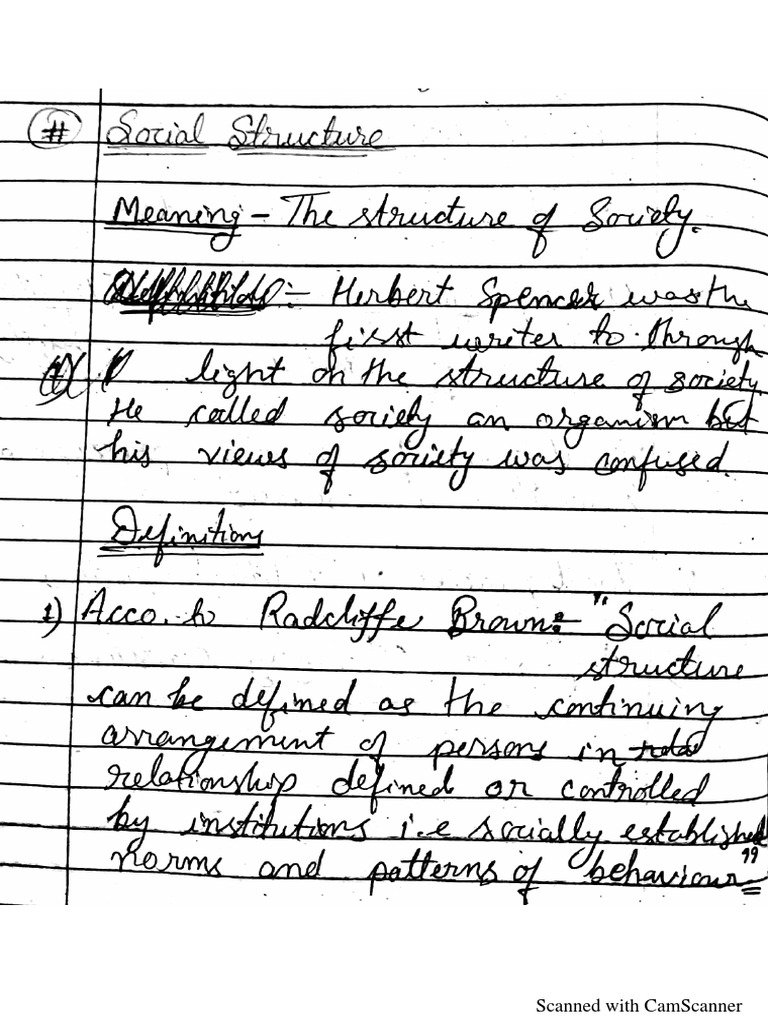 # Social Structure
Meaning - The structure of Society.
:- Herbert Spencer was the
first writer to through
light on the structure of society.
He called society an organism but
his views of society was confused.
Definitions
1) Acco. to Radcliffe Brown:- "Social
structure
can be defined as the continuing
arrangement of persons in
relationship defined or controlled
by institutions i.e socially established
norms and patterns of behaviour"
Scanned with CamScanner